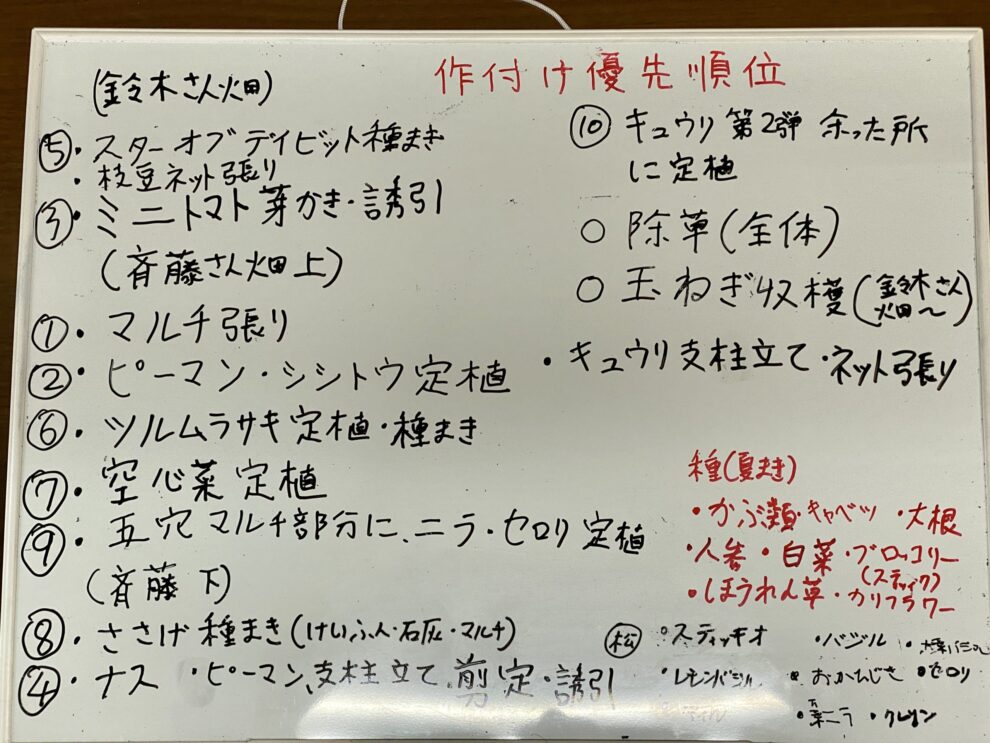 作付け優先順位
(鈴木さん畑)
⑤・スターオブデイビット種まき
・枝豆ネット張り
③・ミニトマト芽かき・誘引
(斉藤さん畑上)
①・マルチ張り
②・ピーマン・シシトウ定植
⑥・ツルムラサキ定植・種まき
⑦・空心菜定植
⑨・五穴マルチ部分に、ニラ・セロリ定植
(斉藤下)
⑧・ささげ種まき(けいふん・石灰・マルチ)
④・ナス・ピーマン、支柱立て、剪定・誘引
⑩キュウリ第2弾 余った所
に定植
○除草(全体)
○玉ねぎ収穫(鈴木さん
畑〜)
・キュウリ支柱立て・ネット張り
種(夏まき)
・かぶ類・キャベツ・大根
・人参・白菜・ブロッコリー
(スティック)
・ほうれん草・カリフラワー
㊗